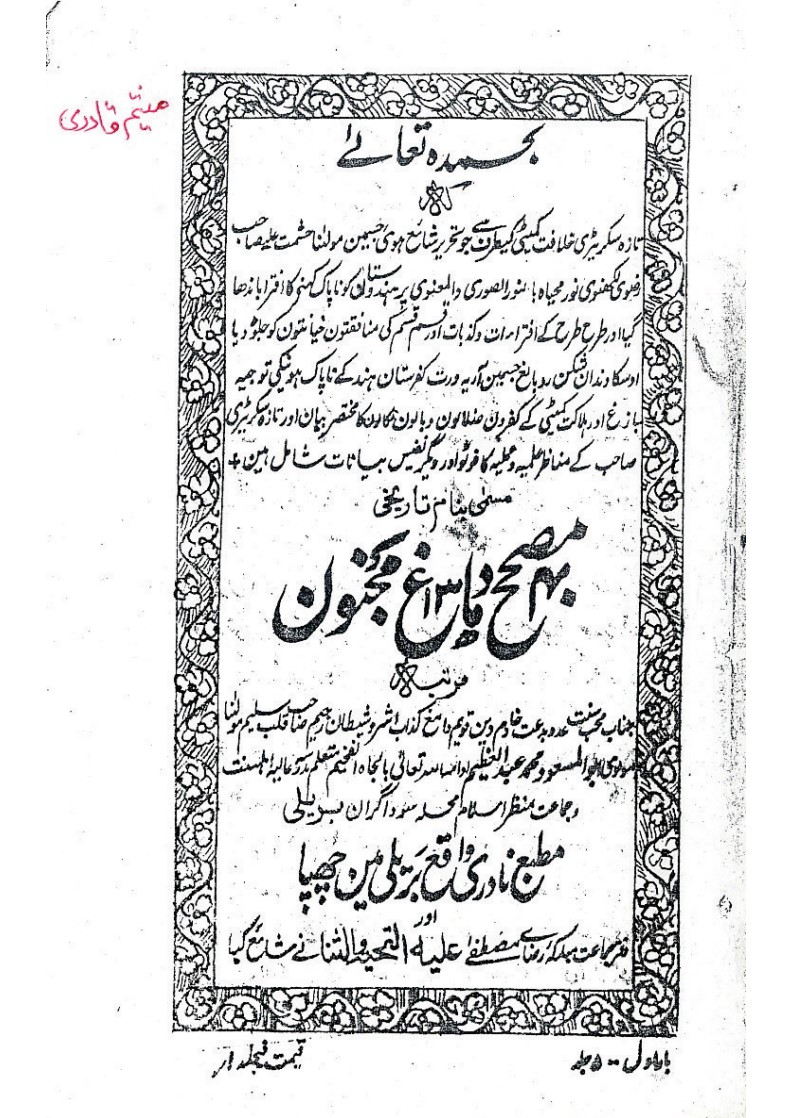 میثم قادری
بحمدہ تعالےٰ
کہ
تازہ سکریٹری خلافت کمیٹی کیطرف سے جو تحریر شائع ہوئی جسمین مولٰنا حشمت علیصاحب
رضوی لکھنوی نور محیاہ بالنور الصوری والمعنوی پر ہندوستان کو ناپاک کہنے کا افترا باندھا
گیا اور طرح طرح کے افتراءات وکذبات اور قسم قسم کی منافقتون خیانتون کو جلوہ دیا
اوسکا دندان شکن رد بالغ جسمین آریہ ورت کفرستان ہند کے ناپاک ہونیکی توجیہ
بازغ اور ہلاکت کمیٹی کے کفرون ضلالون وبالون نکالون کا مختصر بیان اور تازہ سکریٹری
صاحب کے مناظر علمیہ وعملیہ کا فوٹو اور دیگر نفیس بیانات شامل ہین +
مسمیٰ بنام تاریخی
مصحح دماغ مجنون
۱۳۴۰
مرتبہ
جناب محب سنت عدو بدعت خادم دین قویم دامغ کذاب اشر وشیطان رجیم صاحب قلب سلیم مولٰنا
مولوی ابو المسعود محمد عبد العظیم ادامہ اللہ تعالیٰ بالجاہ الفخیم متعلم مدرسہ عالیہ اہلسنت
وجماعت منظر اسلام محلہ سوداگران بریلی
مطبع نادری واقع بریلی مین چھپا
اور
دفتر جماعت مبارکہ رضائے مصطفےٰ علیہ التحیۃ والثنا نے شائع کیا
بار اول ۵۰۰ جلد
قیمت فیجلد ۱ر